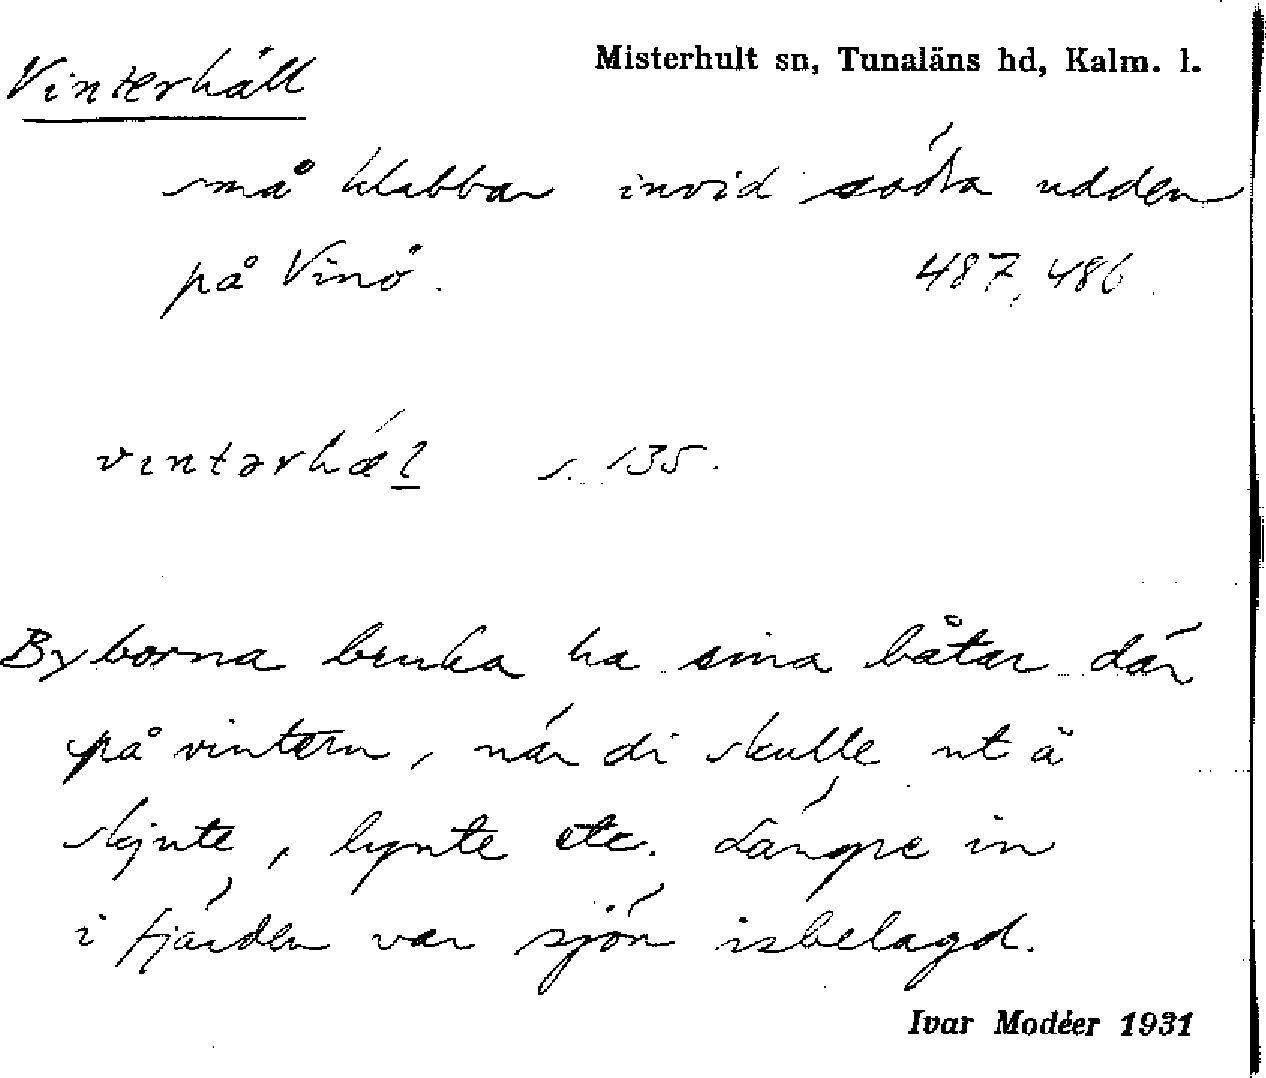 Vinterhäll
Misterhult sn, Tunaläns hd, Kalm. l.
små klabbar invid södra udden
på Vinö. 487, 486.
s. 135.
Byborna bruka ha sina båtar där
på vintern, när di skulle ut ä
skjute, lynte etc. Längre in
i fjärden var sjön isbelagd.
Ivar Modéer 1931